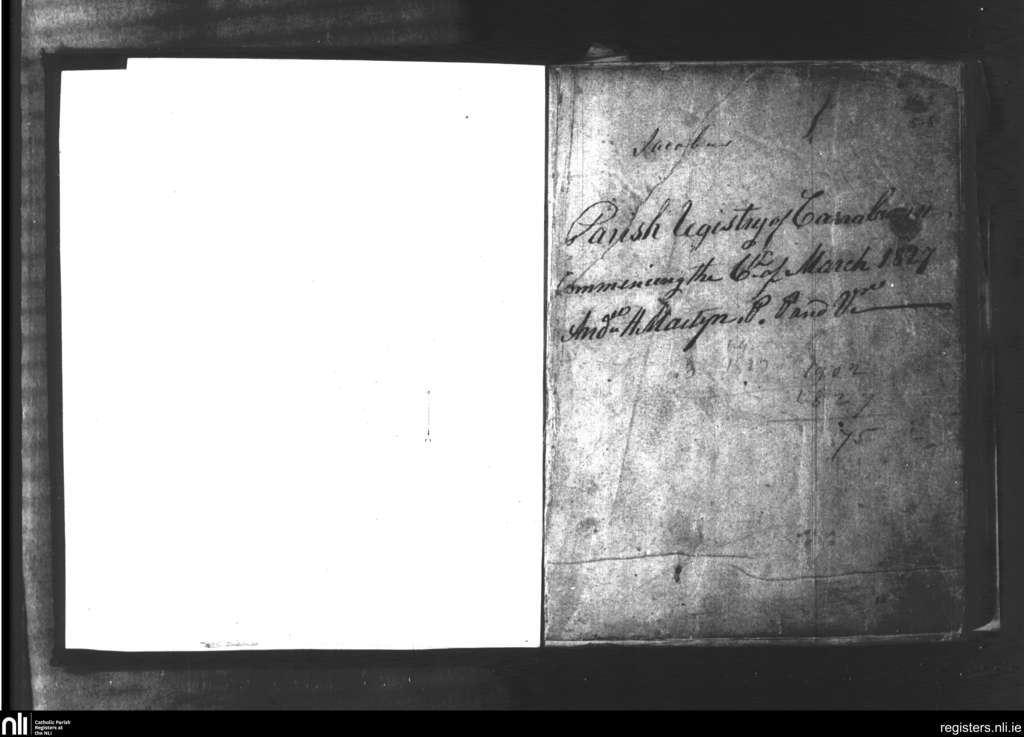 Jacobus
Parish Registry of
Commencing the 6th of March 1827
And.w H. Martyn P. P and V.
1827
1902
1827
75
nli
Catholic Parish
Registers at
the NLI
registers.nli.ie